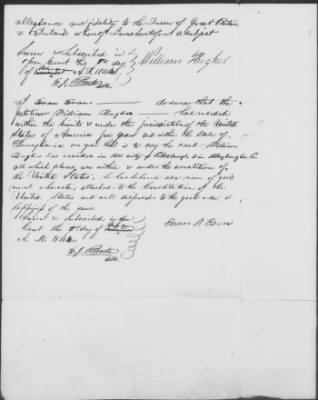 allegiance and fidelity to the Queen of Great Britain
& Ireland whereof I was heretofore a subject
Sworn & Subscribed in
open Court this 2d day
of A.D.
William Hughes
I Evan Evans do swear that the
petitioner William Hughes has resided
within the limits & under the jurisdiction of the United
States of America five years and within the State of
Pennsylvania one year that is to say the said William
Hughes has resided in the city of Pittsburgh in Allegheny Co.
all which places are within & under the
the United States. & has behaved as a man of good
moral character, attached to the Constitution of the
United States and well disposed to the good order &
happiness of the same
Sworn & Subscribed in open
Court the 2d day of
A.D.
Evan Evans